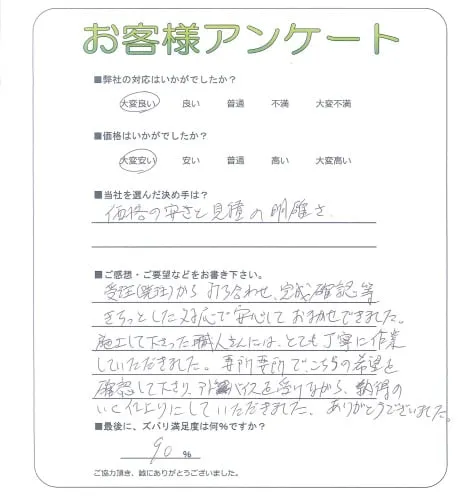 お客様アンケート
■弊社の対応はいかがでしたか？
大変良い 良い 普通 不満 大変不満
■価格はいかがでしたか？
大変安い 安い 普通 高い 大変高い
■当社を選んだ決め手は？
価格の安さと見積の明確さ
■ご感想・ご要望などをお書き下さい。
受注(発注)から打ち合わせ、完成確認等
きちっとした対応で安心しておまかせできました。
施工して下さった職人さんには、とても丁寧に作業
していただきました。要所要所でこちらの希望を
確認して下さり、アドバイスを受けながら、納得の
いく仕上りにしていただきました。ありがとうございました。
■最後に、ズバリ満足度は何％ですか？
90 ％
ご協力頂き、誠にありがとうございました。